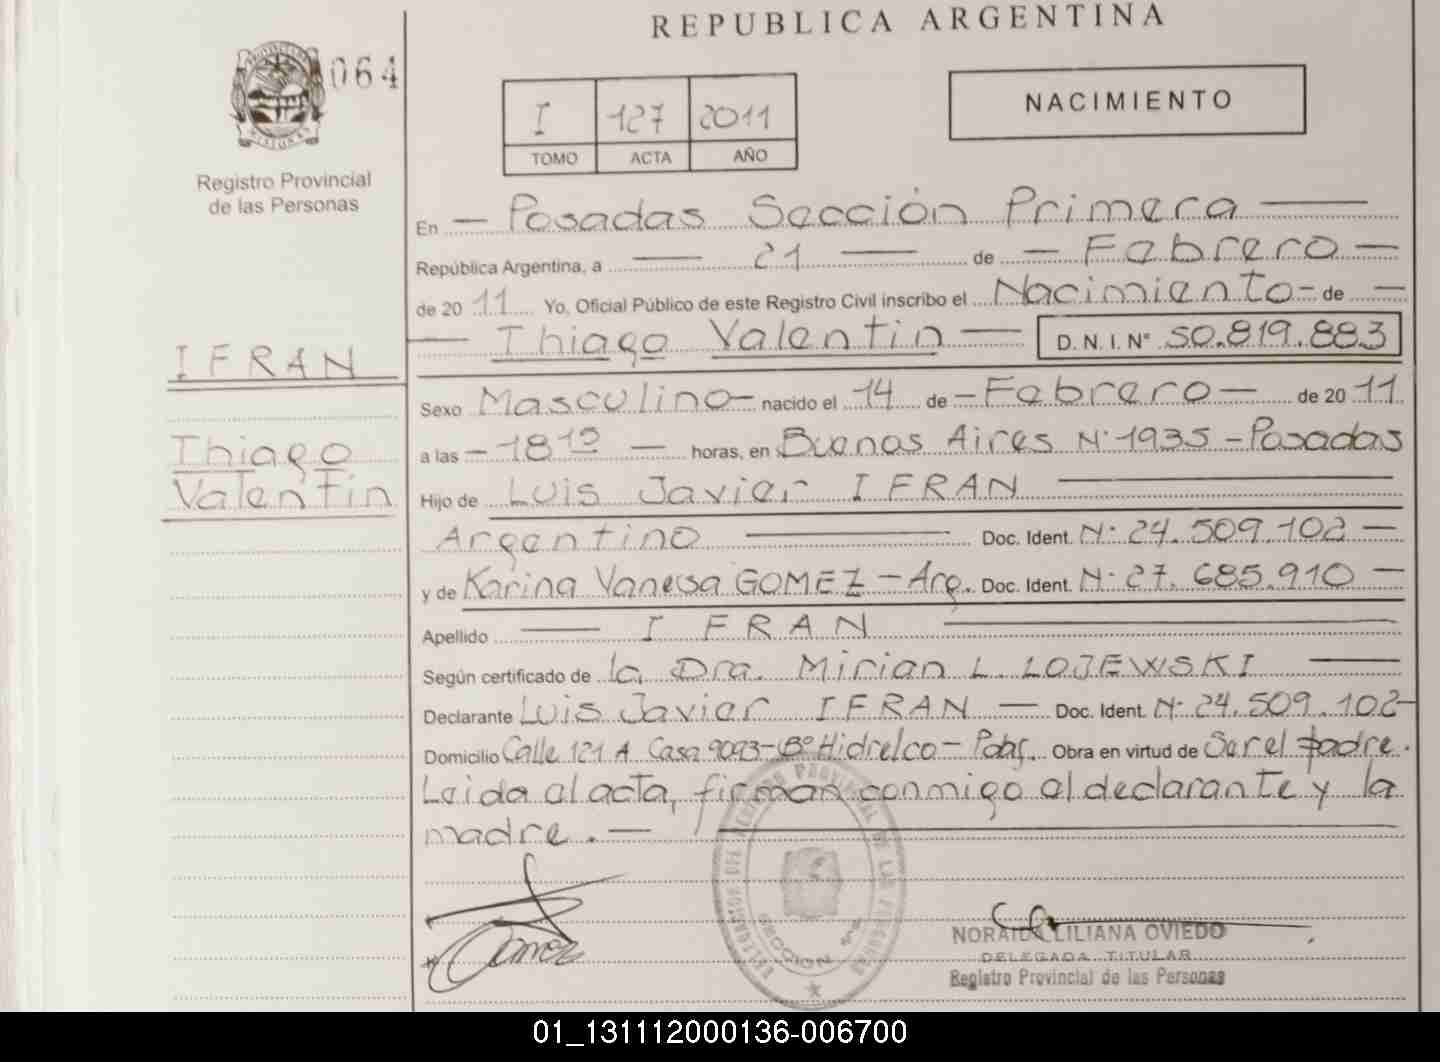 REPUBLICA ARGENTINA
064
I 127 2011
TOMO ACTA AÑO
NACIMIENTO
Registro Provincial
de las Personas
En — Posadas Sección Primera —
República Argentina, a — 21 — de — Febrero —
de 2011 Yo, Oficial Público de este Registro Civil inscribo el Nacimiento - de —
— Thiago Valentin — D. N. I. Nº 50.819.883
IFRAN
Thiago
Valentin
Sexo Masculino — nacido el 14 de — Febrero — de 2011
a las — 18 15 — horas, en Buenos Aires Nº 1935 - Posadas
Hijo de Luis Javier IFRAN —
Argentino — Doc. Ident. Nº 24.509.102 —
y de Karina Vanesa GOMEZ — Arg. Doc. Ident. Nº 27.685.910 —
Apellido — IFRAN —
Según certificado de la Dra. Mirian L. LOJEWSKI —
Declarante Luis Javier IFRAN — Doc. Ident. Nº 24.509.102 —
Domicilio Calle 121 A Casa 9093 - Bº Hidrelco - Pdas. Obra en virtud de Ser el padre.
Leida el acta, firman conmigo el declarante y la
madre. —
DELEGACION DEL REGISTRO PROVINCIAL DE LAS PERSONAS
SECCION 1ª
NORAIDA LILIANA OVIEDO
DELEGADA TITULAR
Registro Provincial de las Personas
01_131112000136-006700